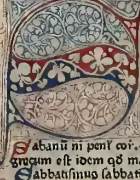 Sabanū ni penľ coi.
grecum est idem qđ m
Sabbatismus sabbat